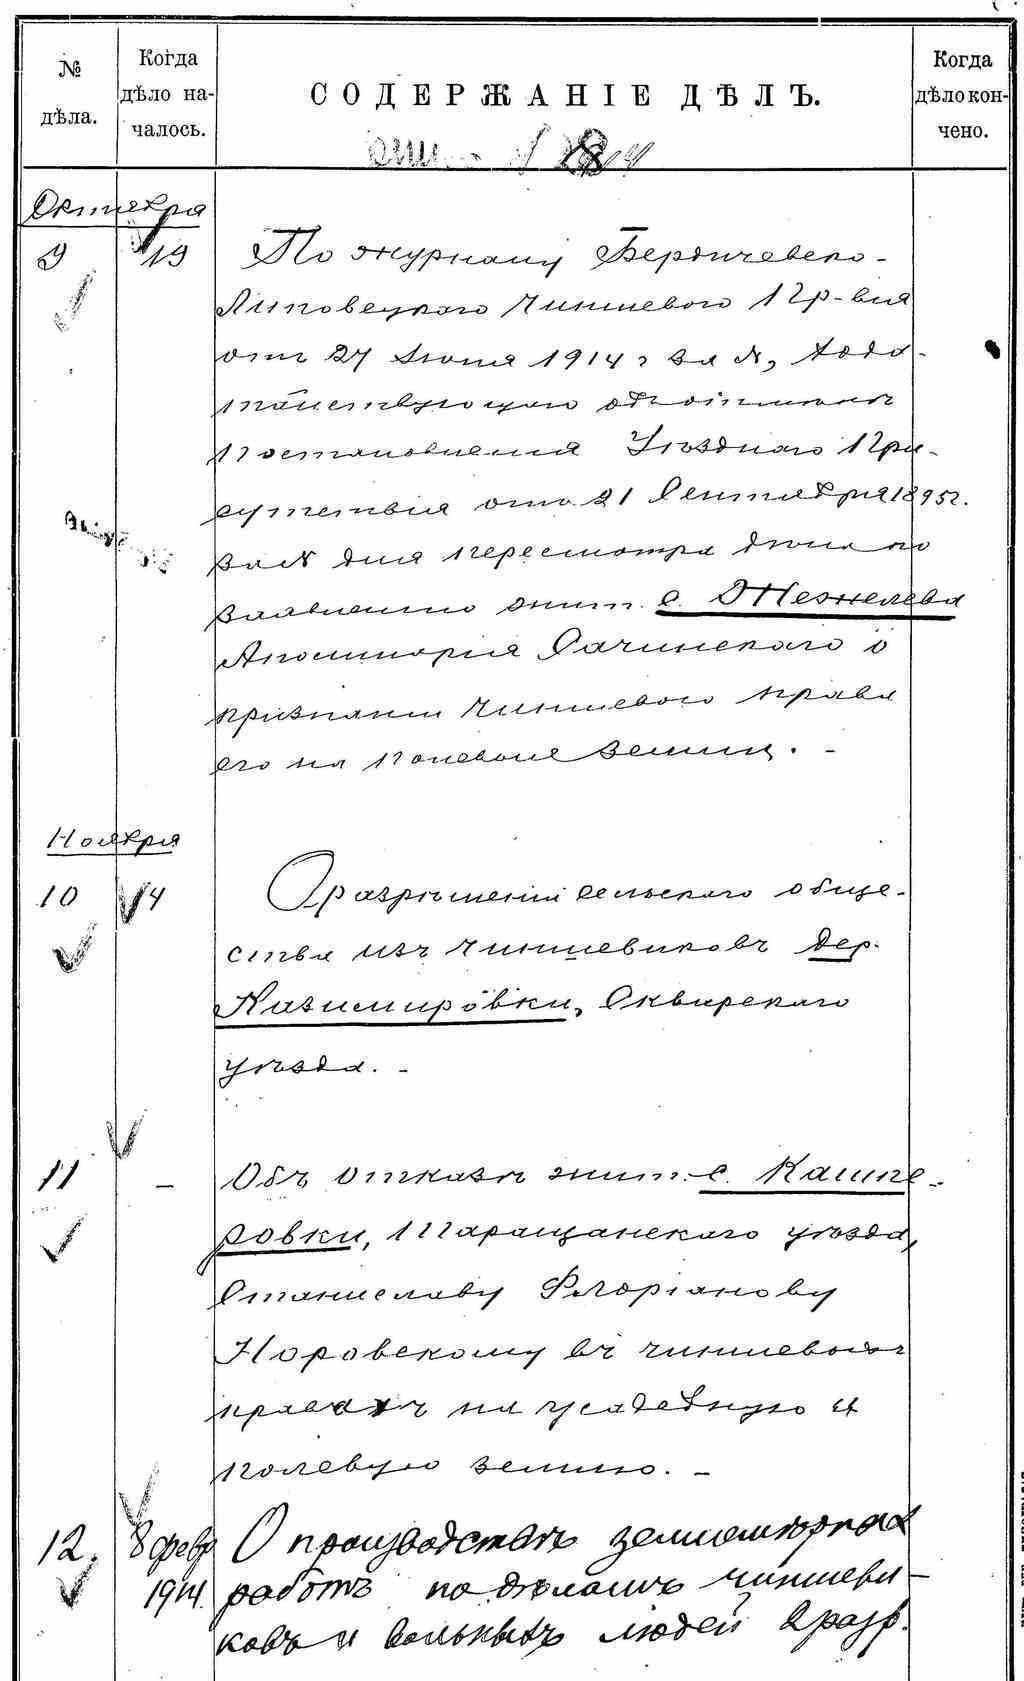 № дѣла.
Когда дѣло на-
чалось.
СОДЕРЖАНІЕ ДѢЛЪ.
Когда дѣло кон-
чено.
Октября
9 19 По журналу Бердичевско-
Липовецкаго Чиншевого Пр-вія
отъ 27 Іюня 1914 г за №, хода-
тайствующаго объ отмѣнѣ
постановленія Уѣзднаго При-
сутствія отъ 21 Сентября 1895 г.
за № для пересмотра дѣла по
заявленію жит. с. Жежелева
Аполинарія Сачинскаго о
признаніи чиншевого права
его на полевыя земли. -
Ноября
10 4 О разрѣшеніи сельскаго обще-
ства изъ чиншевиковъ дер.
Казимировки, Сквирскаго
уѣзда. -
11 - Объ отказѣ жит. с. Кашпе-
ровки, Таращанскаго уѣзда,
Станиславу Флоріанову
Норовскому въ чиншевыхъ
правахъ на усадебную и
полевую землю. -
12. 8 февр О производствѣ землемѣрныхъ
1914. работъ по дѣламъ чиншеви-
ковъ и вольныхъ людей 2 разр.